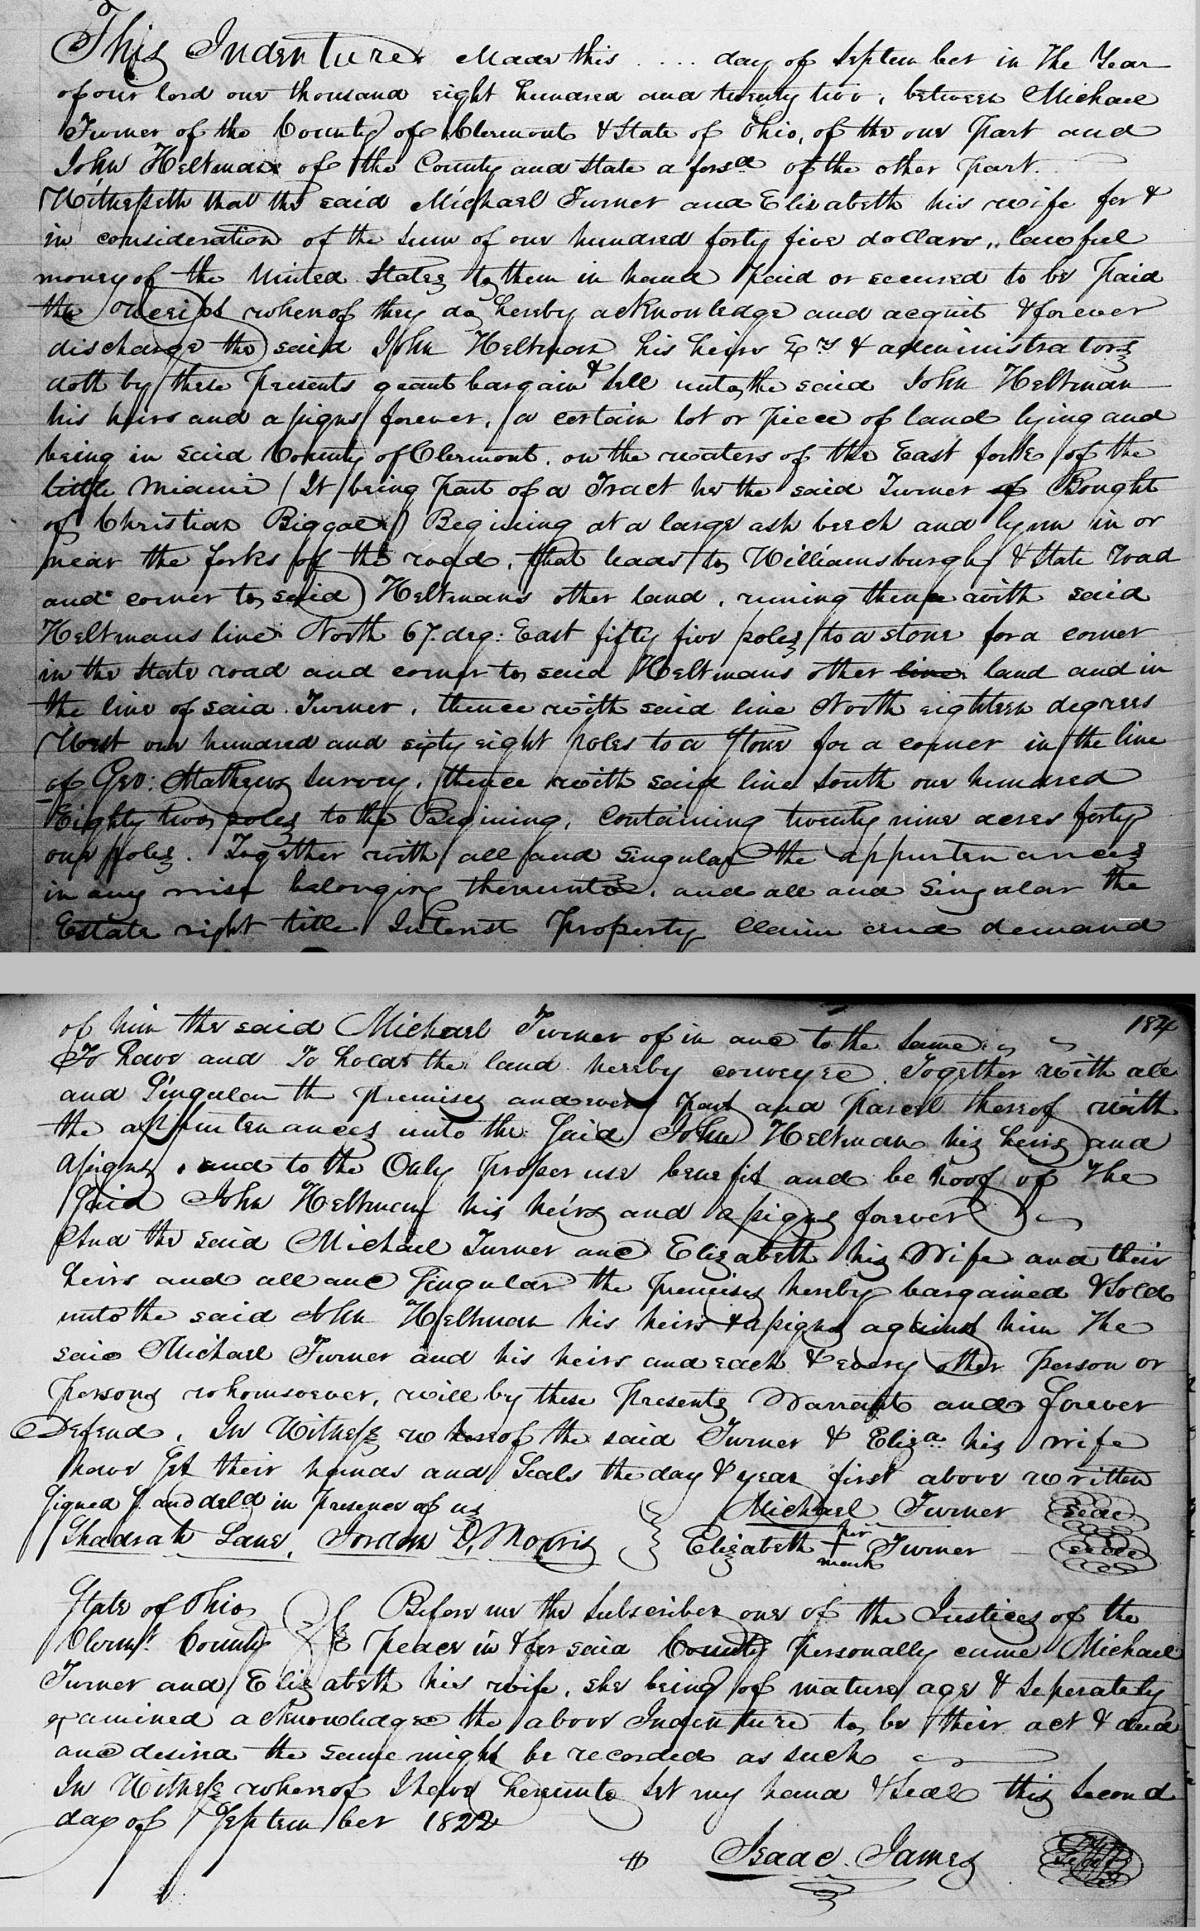 This Indenture Made this .... day of September in The Year
of our lord one thousand eight hundred and twenty two, between Michael
Turner of the County of Clermont & State of Ohio, of the one Part and
John Heltman of the County and State aforsd of the other Part.
Witnesseth that the said Michael Turner and Elizabeth his wife for &
in consideration of the sum of one hundred forty five dollars, lawful
money of the United States to them in hand Paid or secured to be Paid
the receipt whereof they do hereby acknowledge and acquit & forever
discharge the said John Heltman his heirs Exrs & administrators
doth by these Presents grant bargain & sell unto the said John Heltman
his heirs and assigns forever, a certain lot or Piece of land lying and
being in said County of Clermont, on the waters of the East fork of the
little Miami (It being Part of a Tract he the said Turner Bought
of Christian Biggae) Begining at a large ash beech and lynn in or
near the forks of the road, that leads to Williamsburgh & State road
and corner to said Heltmans other land, runing thence with said
Heltmans line North 67. deg: East fifty five poles to a stone for a corner
in the State road and corner to said Heltmans other line land and in
the line of said Turner, thence with said line North eighteen degrees
West one hundred and sixty eight poles to a Stone for a corner in the line
of Geo: Mathews survey, thence with said line South one hundred
Eighty two poles to the Begining, Containing twenty nine acres forty
one poles. Together with all and singular the appurtenances
in any wise belonging thereunto, and all and Singular the
Estate right title Interest Property Claim and demand
184
of him the said Michael Turner of in and to the same
To have and To hold the land hereby conveyed. Together with all
and Singular the premises and every part and parcel thereof with
the appurtenances unto the Said John Heltman his heirs and
Assigns, and to the Only Proper use benefit and behoof of The
Said John Heltman his heirs and assigns forever
And the said Michael Turner and Elizabeth his Wife and their
heirs and all and Singular the premises hereby bargained & Sold
unto the said John Heltman his heirs & assigns against him The
said Michael Turner and his heirs and each & every other Person or
Persons whomsoever, will by these Presents Warrant and forever
Defend. In Witness whereof the said Turner & Eliza. his wife
have Set their hands and Seals the day & year first above written
Signed S. and deld in Presence of us
Michael Turner seal
Shadrah Lane, Jordon D, Morris
Elizabeth her + mark Turner seal
State of Ohio
Clermt. County
Before me the Subscriber one of the Justices of the
Peace in & for said County Personally came Michael
Turner and Elizabeth his wife, she being of mature age & Seperately
examined acknowledged the above Indenture to be their act & deed
and desired the same might be recorded as such
In Witness whereof I have hereunto Set my hand & Seal this Second
day of September 1822
Isaac. James seal